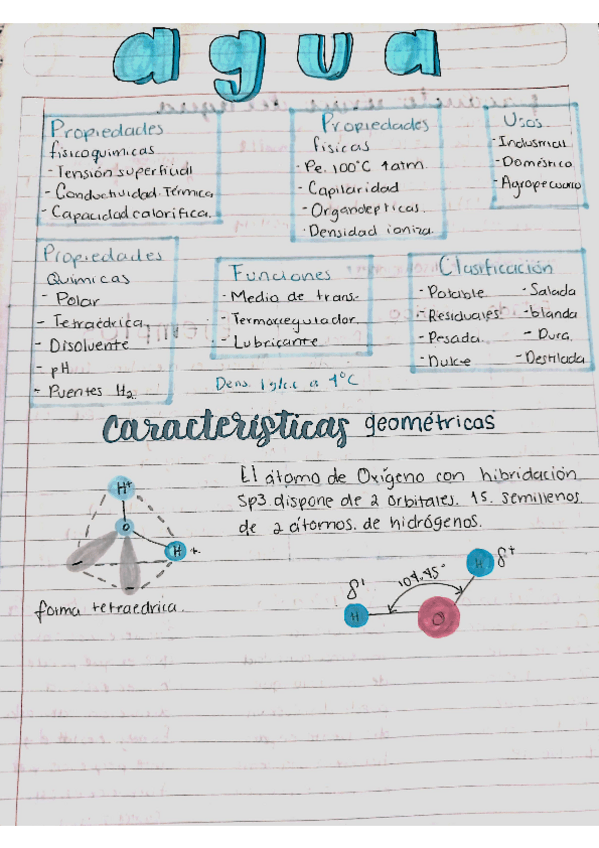 agua
Propiedades
fisicoquimicas
- Tensión superfiudl
- Conductividad Térmica
- Capacidad calorifica.
Propiedades
físicas
- Pe. 100°C 1atm
- Capilaridad
- Organolepticas.
- Densidad ioniza.
Usos
- Industrial
- Doméstico
- Agropecuario
Propiedades
Químicas
- Polar
- Tetraédrica,
- Disolvente
- pH
- Puentes H2.
Funciones
- Medio de trans.
- Termorregulador
- Lubricante
Clasificación
- Potable - Salada
- Residuales - blanda
- Pesada. - Dura.
- Dulce - Destilada
Dens
características geométricas
El átomo de Oxígeno con hibridación
Sp3 dispone de 2 orbitales. 1s. semillenos
de 2 átomos. de hidrógenos.
H+
O
H +
-
-
forma tetraedrica.
104.45°
H δ+
H
O